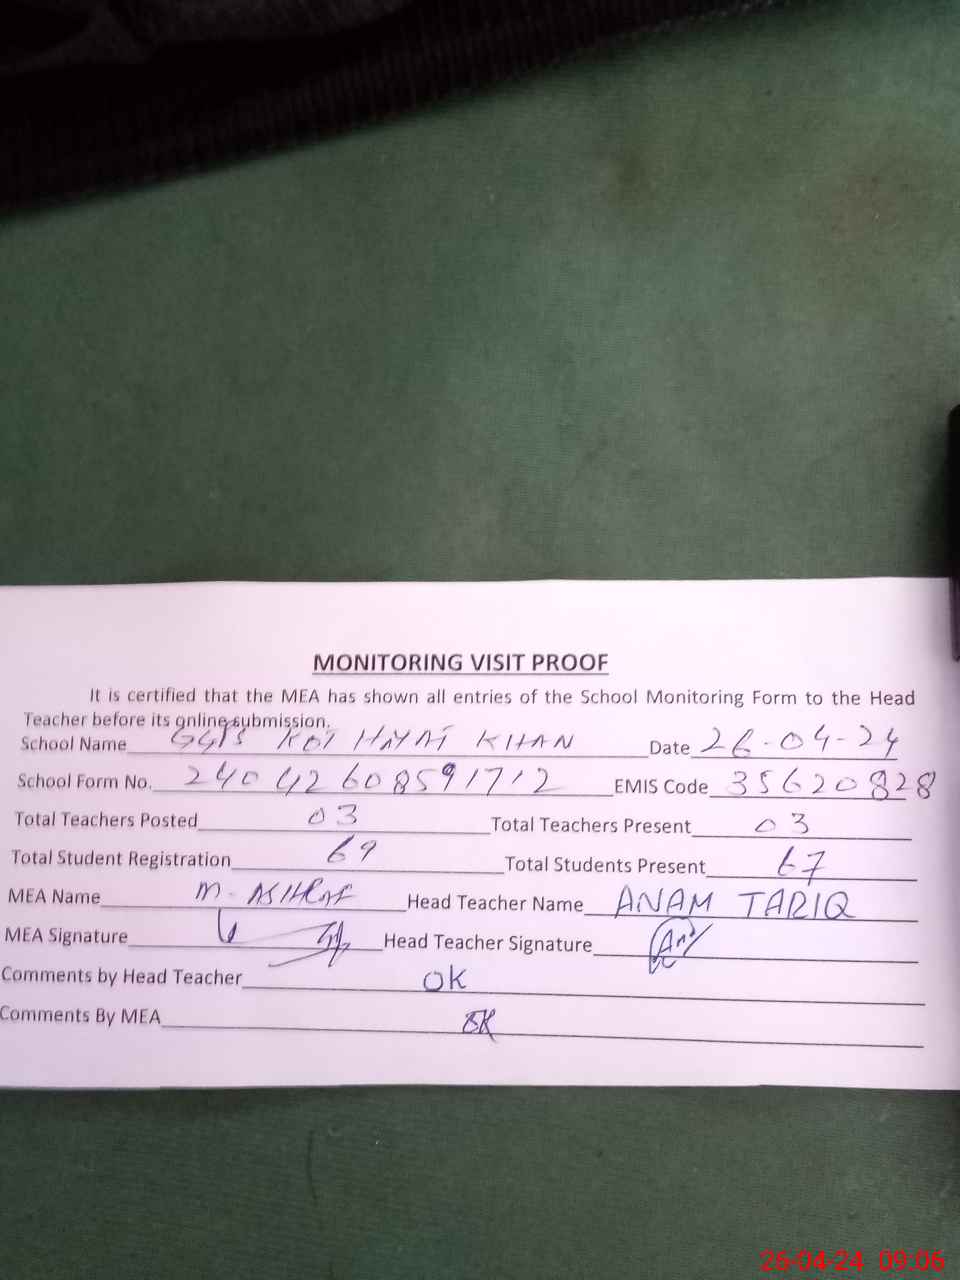 MONITORING VISIT PROOF
It is certified that the MEA has shown all entries of the School Monitoring Form to the Head
Teacher before its online submission.
School Name KOT HAYAT KHAN Date 26-04-24
School Form No. 24042608591712 EMIS Code 35620828
Total Teachers Posted 03 Total Teachers Present 03
Total Student Registration 69 Total Students Present 67
MEA Name M. ASHRAF Head Teacher Name ANAM TARIQ
MEA Signature Head Teacher Signature
Comments by Head Teacher OK
Comments By MEA OK
26-04-24 09:06